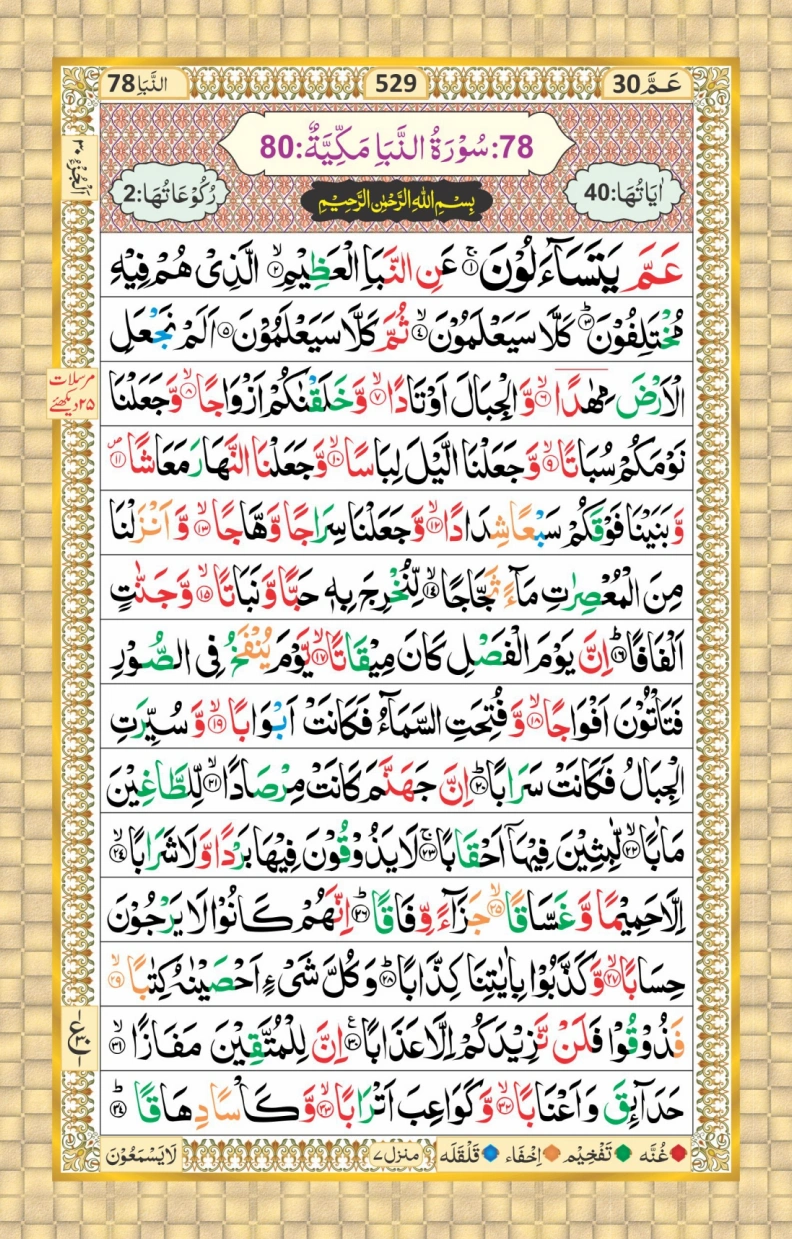 عَـمَّ 30
529
النَّبَاِ 78
78: سُوْرَةُ النَّبَاِ مَكِّيَّةٌ: 80
اٰيَاتُهَا: 40
بِسْمِ اللّٰهِ الرَّحْمٰنِ الرَّحِيْمِ
رُكُوْعَاتُهَا: 2
اَلْجُزْءُ ٣٠
عَمَّ يَتَسَآءَلُوْنَ ۚ‏﴿۱﴾ عَنِ النَّبَاِ الْعَظِيْمِ ۙ‏﴿۲﴾ الَّذِىْ هُمْ فِيْهِ
مُخْتَلِفُوْنَ ؕ‏﴿۳﴾ كَلَّا سَيَعْلَمُوْنَ ۙ‏﴿۴﴾ ثُمَّ كَلَّا سَيَعْلَمُوْنَ ﴿۵﴾ اَلَمْ نَجْعَلِ
الْاَرْضَ مِهٰدًا ۙ‏﴿۶﴾ وَّالْجِبَالَ اَوْتَادًا ۙ‏﴿۷﴾ وَّخَلَقْنٰكُمْ اَزْوَاجًا ۙ‏﴿۸﴾ وَّجَعَلْنَا
مرسلات
٢٥ دیکھئے
نَوْمَكُمْ سُبَاتًا ۙ‏﴿۹﴾ وَّجَعَلْنَا الَّيْلَ لِبَاسًا ۙ‏﴿۱۰﴾ وَّجَعَلْنَا النَّهَارَ مَعَاشًا ۪‏﴿۱۱﴾
وَّبَنَيْنَا فَوْقَكُمْ سَبْعًا شِدَادًا ۙ‏﴿۱۲﴾ وَّجَعَلْنَا سِرَاجًا وَّهَّاجًا ۙ‏﴿۱۳﴾ وَّاَنْزَلْنَا
مِنَ الْمُعْصِرٰتِ مَآءً ثَجَّاجًا ۙ‏﴿۱۴﴾ لِّنُخْرِجَ بِهٖ حَبًّا وَّنَبَاتًا ۙ‏﴿۱۵﴾ وَّجَنّٰتٍ
اَلْفَافًا ؕ‏﴿۱۶﴾ اِنَّ يَوْمَ الْفَصْلِ كَانَ مِيْقَاتًا ۙ‏﴿۱۷﴾ يَّوْمَ يُنْفَخُ فِى الصُّوْرِ
فَتَاْتُوْنَ اَفْوَاجًا ۙ‏﴿۱۸﴾ وَّفُتِحَتِ السَّمَآءُ فَكَانَتْ اَبْوَابًا ۙ‏﴿۱۹﴾ وَّسُيِّرَتِ
الْجِبَالُ فَكَانَتْ سَرَابًا ؕ‏﴿۲۰﴾ اِنَّ جَهَنَّمَ كَانَتْ مِرْصَادًا ۙ‏﴿۲۱﴾ لِّلطَّاغِيْنَ
مَاٰبًا ۙ‏﴿۲۲﴾ لّٰبِثِيْنَ فِيْهَاۤ اَحْقَابًا ۚ‏﴿۲۳﴾ لَا يَذُوْقُوْنَ فِيْهَا بَرْدًا وَّلَا شَرَابًا ۙ‏﴿۲۴﴾
اِلَّا حَمِيْمًا وَّغَسَّاقًا ۙ‏﴿۲۵﴾ جَزَآءً وِّفَاقًا ؕ‏﴿۲۶﴾ اِنَّهُمْ كَانُوْا لَا يَرْجُوْنَ
حِسَابًا ۙ‏﴿۲۷﴾ وَّكَذَّبُوْا بِاٰيٰتِنَا كِذَّابًا ؕ‏﴿۲۸﴾ وَكُلَّ شَىْءٍ اَحْصَيْنٰهُ كِتٰبًا ۙ‏﴿۲۹﴾
فَذُوْقُوْا فَلَنْ نَّزِيْدَكُمْ اِلَّا عَذَابًا ‏﴿۳۰﴾ اِنَّ لِلْمُتَّقِيْنَ مَفَازًا ۙ‏﴿۳۱﴾
حَدَآئِقَ وَاَعْنَابًا ۙ‏﴿۳۲﴾ وَّكَوَاعِبَ اَتْرَابًا ۙ‏﴿۳۳﴾ وَّكَاْسًا دِهَاقًا ؕ‏﴿۳۴﴾
غُنَّه تَفْخِيْم اِخْفَاء قَلْقَلَه
منزل ٧
لَا يَسْمَعُوْنَ